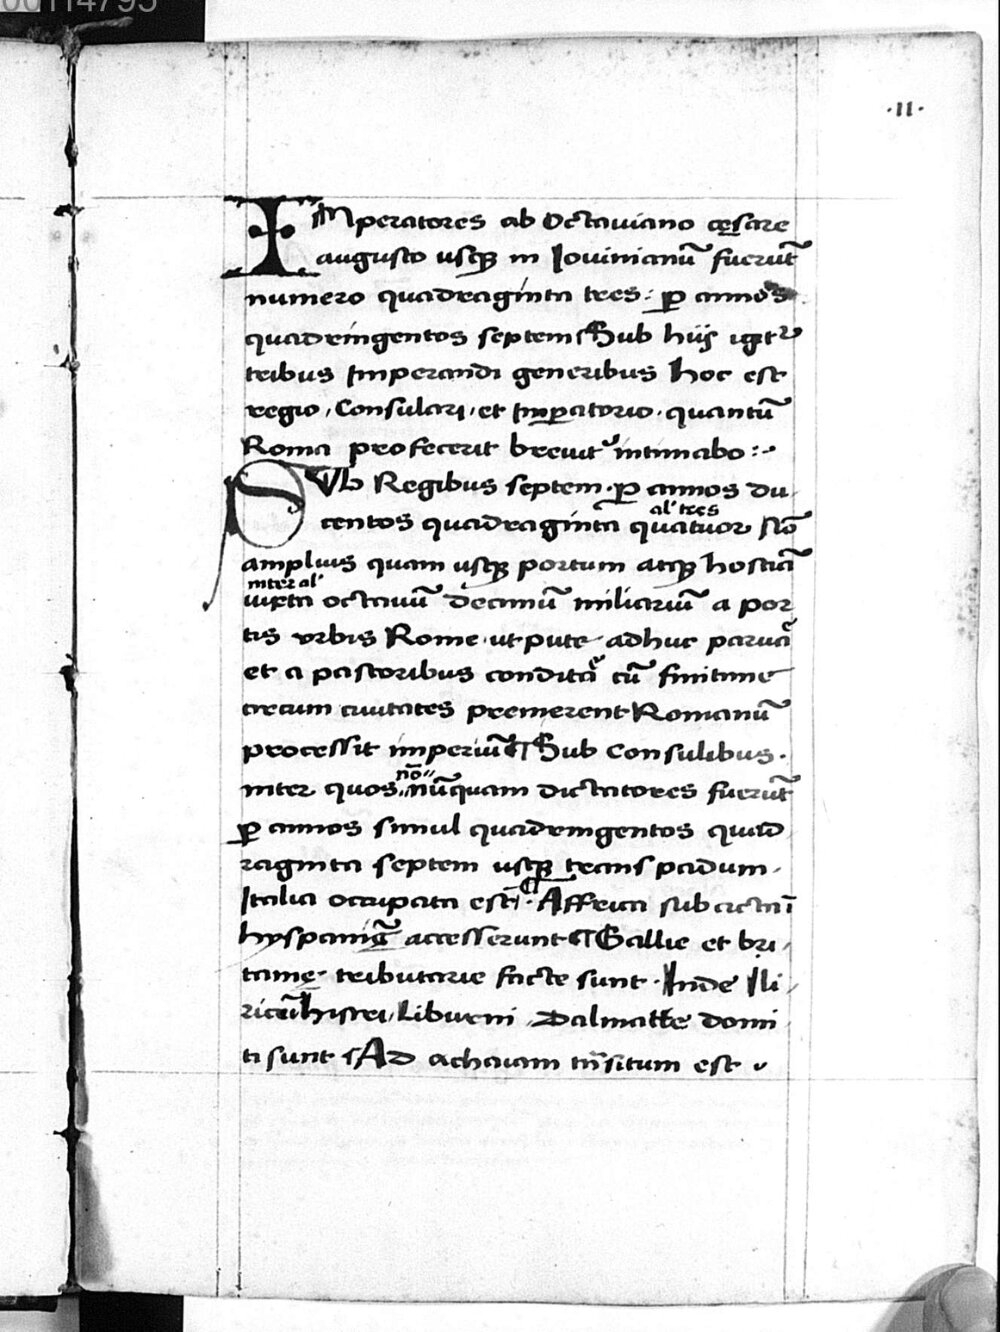 00114795
·11·
IMperatores ab Octauiano cęsare
augusto usqꝫ in Iouinianū fuerūt
numero quadraginta tres: ꝑ annos
quadringentos septem Sub hijs igitᷣ
tribus Imperandi generibus hoc est
regio, Consulari, et Impatorio quantū
Roma profecerit breuitᷣ intimabo :~
SVb Regibus septem · ꝑ annos du
al' tres
centos quadraginta quatuor nō
amplius quam usqꝫ portum atqꝫ hostiā
inter al'
iuxta octauū decimū miliariū a por
tis vrbis Rome ut pute adhuc parua
et a pastoribus condita cū finitime
circum ciuitates premerent Romanū
processit imperiū ¶ Sub Consulibus ·
nō
inter quos nūquam dictatores fuerūt
ꝑ annos simul quadringentos quad
raginta septem usqꝫ trans padum ·
Italia occupata est · ¶ Affrica subacta ī
hyspanię accesserunt ¶ Gallie et bri
tanię · tributarie facte sunt · Inde Ili
rici histri, Liburni, Dalmatte domi
ti sunt Ad achaiam trāsitum est